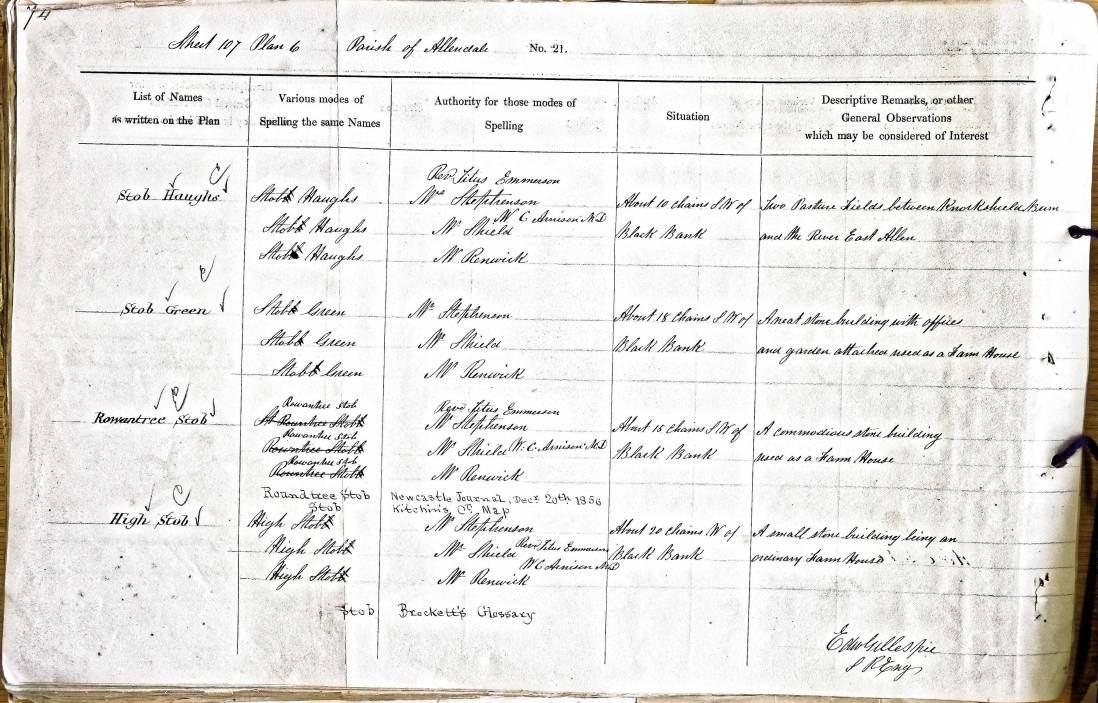 74
Sheet 107 Plan 6 Parish of Allendale No. 21.
List of Names as written on the Plan
Various modes of Spelling the same Names
Authority for those modes of Spelling
Situation
Descriptive Remarks, or other General Observations which may be considered of Interest
Rev. Titus Emmerson
Stob Haughs Stobb Haughs Mr. Stephenson About 10 chains S.W of Two Pasture Fields between Knockshield Burn
W C Arnison M.D
Stobb Haughs Mr Shield Black Bank and the River East Allen
Stobb Haughs Mr Renwick
Stob Green Stobb Green Mr. Stephenson About 18 chains S.W of A neat stone building with offices
Stobb Green Mr. Shield Black Bank and garden attached used as a Farm House
Stobb Green Mr Renwick
Rowantree Stob Revd. Titus Emmerson
Rowantree Stob Rowntree Stobb Mr Stephenson About 15 chains S.W of A commodious stone building
Rowantree Stob
Rowntree Stobb Mr Shield W. C. Arnison M.D Black Bank used as a Farm House
Rowantree Stob
Rowntree Stobb Mr Renwick
Roundtree Stob Newcastle Journal, Decr. 20th 1856
Stob Kitchin's Co. Map
High Stob High Stobb Mr Stephenson About 20 chains W. of A small stone building being an
High Stobb Mr Shield Revd Titus Emmerson Black Bank ordinary Farm House
W C Arnison M.D
High Stobb Mr Renwick
Stob Brockett's Glossary
Edw Gillespie
S R Eng